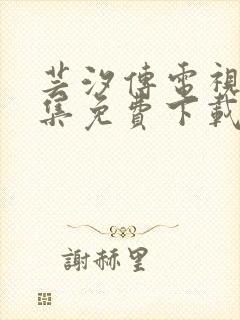 芸汐傳電視
集免費下載
謝赫里